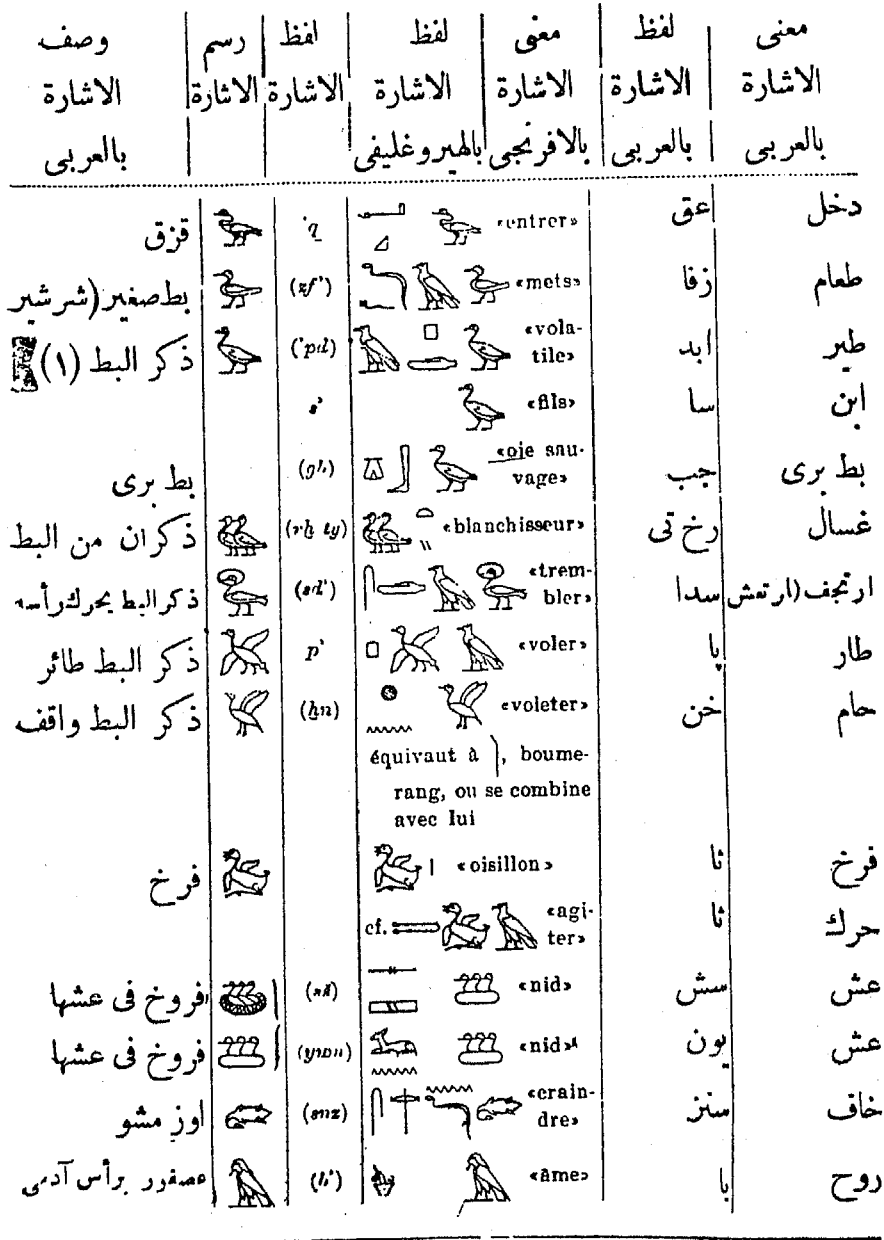 معنى الاشارة بالعربى | لفظ الاشارة بالعربى | معنى الاشارة بالافرنجى | لفظ الاشارة بالهيروغليفى | لفظ الاشارة | رسم الاشارة | وصف الاشارة بالعربى
دخل | عق | «entrer» | 'q | قزق
طعام | زفا | «mets» | (zf') | بط صغير (شرشير
طير | ابد | «vola-tile» | ('pd) | ذكر البط (١)
ابن | سا | «fils» | s'
بط برى | جب | «oie sau-vage» | (gb) | بط برى
غسال | رخ تى | «blanchisseur» | (rḫ ty) | ذكران من البط
ارتجف (ارتعش | سدا | «trem-bler» | (sd') | ذكر البط يحرك رأسه
طار | پا | «voler» | p' | ذكر البط طائر
حام | خن | «voleter» | (ḫn) | ذكر البط واقف
équivaut à ), boume-
rang, ou se combine
avec lui
فرخ | ثا | «oisillon» | فرخ
حرك | ثا | cf. «agi-ter»
عش | سش | «nid» | (sš) | فروخ فى عشها
عش | يون | «nid» | فروخ فى عشها
خاف | سنز | «crain-dre» | (snz) | اوز مشو
روح | با | «âme» | (b') | عصفور برأس آدمى